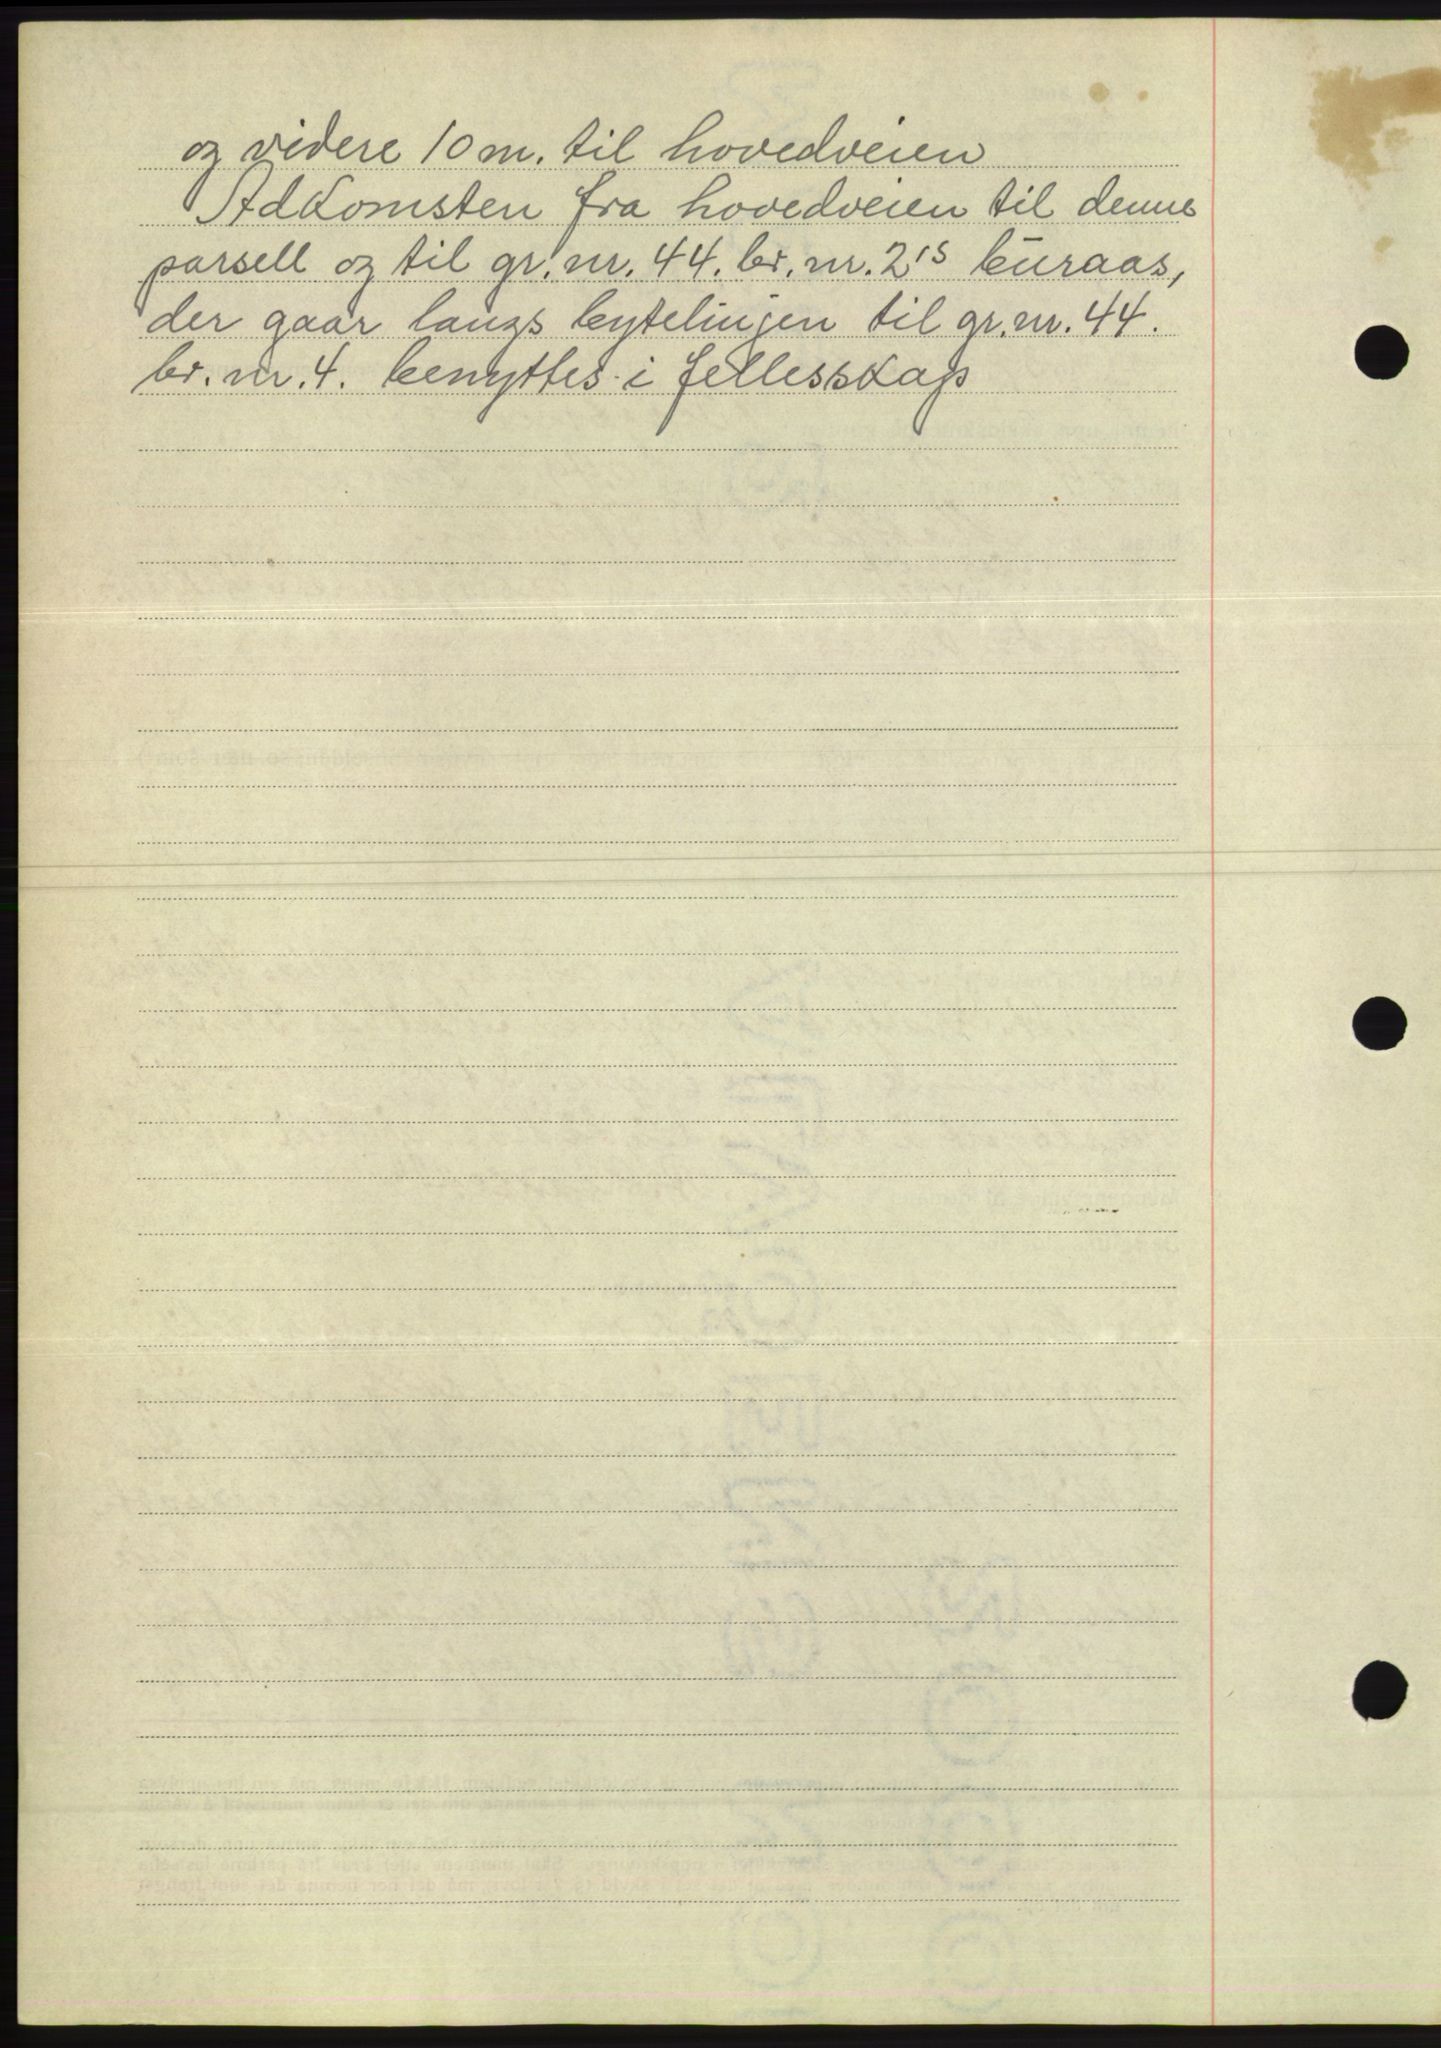 og videre 10 m. til hovedveien
Adkomsten fra hovedveien til denne
parsell og til gr. nr. 44. br. nr. 2¹⁵ Buraas,
der gaar langs bytelinjen til gr. nr. 44.
br. nr. 4. benyttes i fellesskap